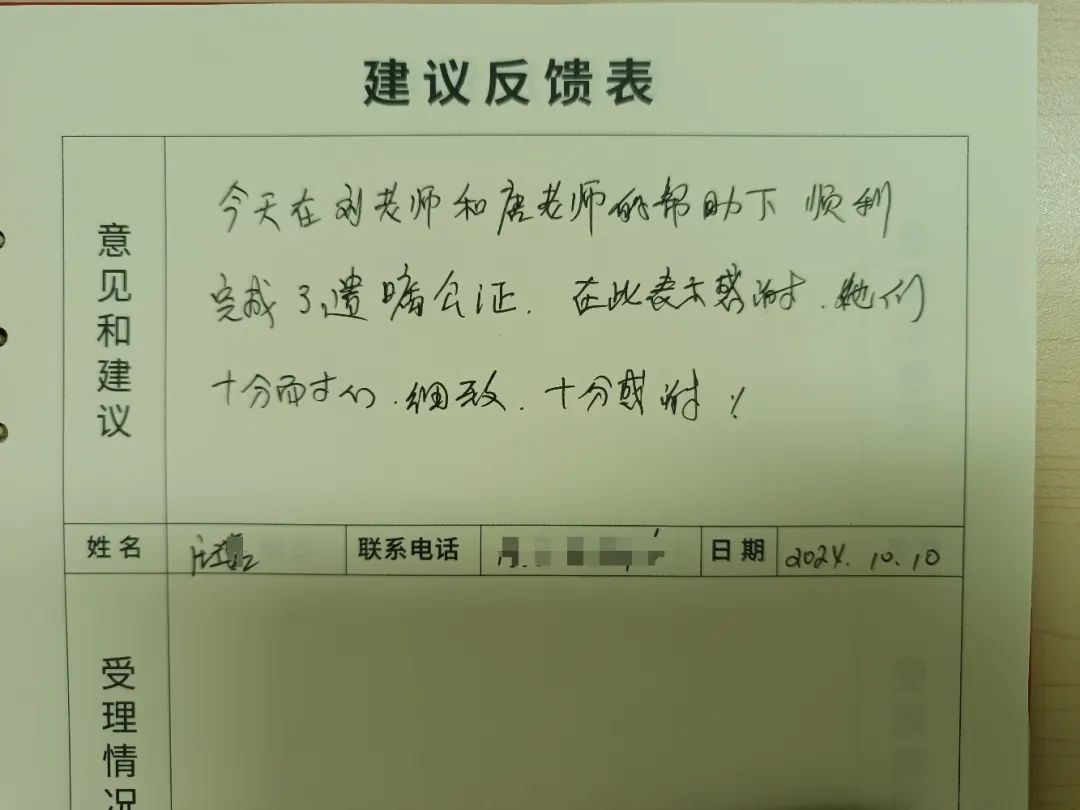 建议反馈表
意见和建议
今天在刘老师和唐老师的帮助下顺利
完成了遗嘱公证.在此表示感谢.她们
十分耐心.细致.十分感谢!
姓名
联系电话
日期 2024.10.10
受理情况